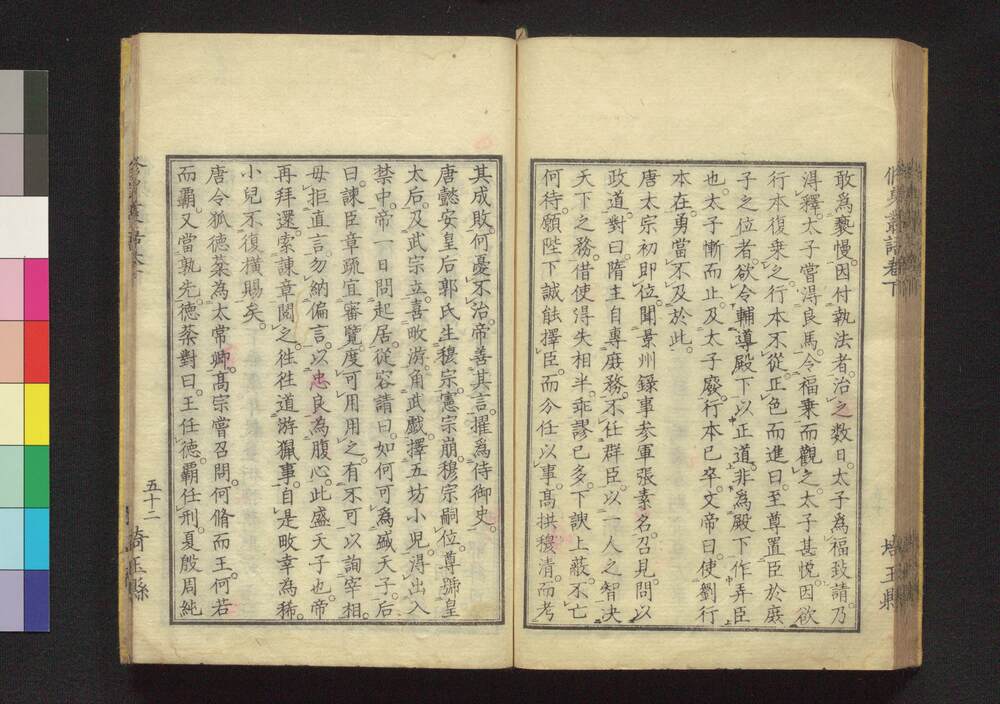 敢為褻慢。因付執法者治之。数日。太子為福致請。乃
淂釋。太子嘗淂良馬。令福乗而觀之。太子甚悦。因欲
行本復乗之。行本不從。正色而進曰。至尊置臣於庭
子之位者。欲令輔導殿下以正道。非為殿下作弄臣
也。太子慚而止。及太子廢。行本已卒。文帝曰。使劉行
本在。勇當不及於此。
唐太宗初即位。聞景州錄事參軍張素名。召見。問以
政道。對曰。隋主自專庭務。不任群臣。以一人之智。決
天下之務。借使淂失相半。乖謬已多。下諛上蔽。不亡
何待。願陛下誠能擇臣。而分任以事。髙拱穆清。而考
其成敗。何憂不治。帝善其言。擢為侍御史。
唐懿安皇后郭氏生穆宗。憲宗崩。穆宗嗣位。尊號皇
太后。及武宗立。喜畋游。角武戲。擇五坊小児。淂出入
禁中。帝一日問起居。從容請曰。如何可為盛天子。后
曰。諫臣章疏宜審覽。度可用用之。有不可。以詢宰相。
毋拒直言。勿納偏言。以忠良為腹心。此盛天子也。帝
再拜還。索諫章閲之。徃徃道游猟事。自是畋幸為稀。
小兒不復橫賜矣。
唐令狐德棻為太常卿。髙宗嘗召問。何脩而王。何若
而霸。又當孰先。徳棻對曰。王任徳。霸任刑。夏殷周純
五十二